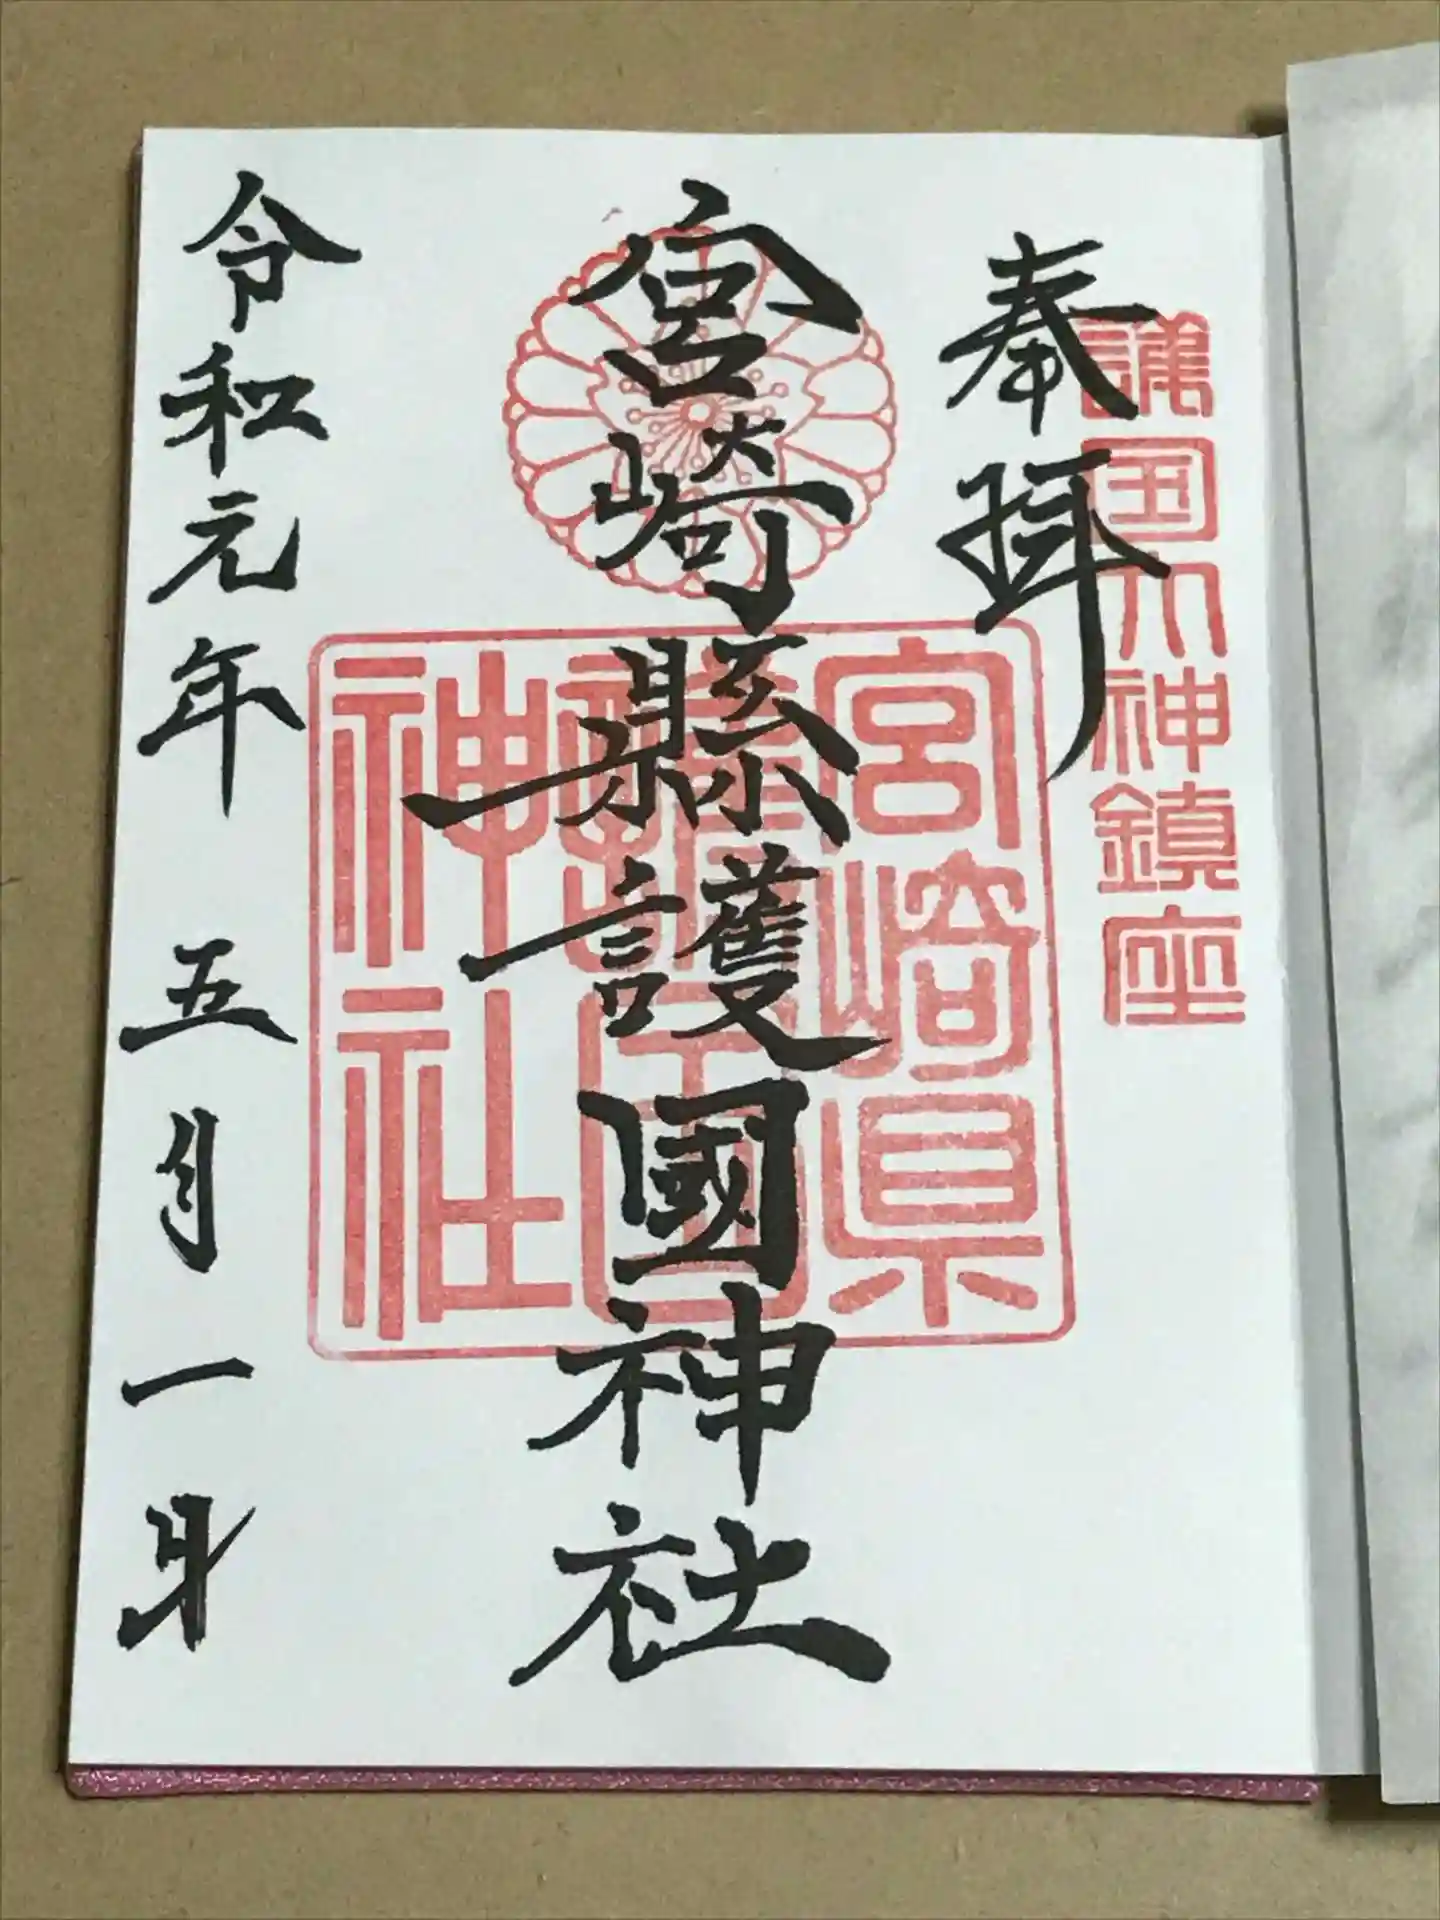 奉拝
護国大神鎮座
宮崎縣護國神社
宮崎県
護国
神社
令和元年 五月一日